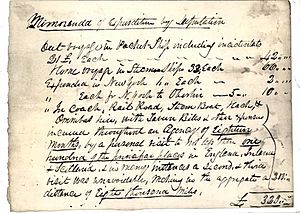 Memoranda of Expenditure by Deputation
Out voyage in Packet Ship including incidentals
21£ Each 42 " "
Home voyage in Steam Ship 33 Each 66 "
Expences in New York Each 2 "
" Each fm N York to 5 10 "
" In Coach, Rail Road, Steam Boat, Hack &
Omnibus hire, with Tavern Bills & other expences
incurred throughout an Agency of Eighteen
Months, by a personal visit to not less than one
hundred of the principal places in England, Ireland
& Scotland, & in many instances a second & third
visit was unavoidable, making in the aggregate a
distance of Eight thousand Miles,
£